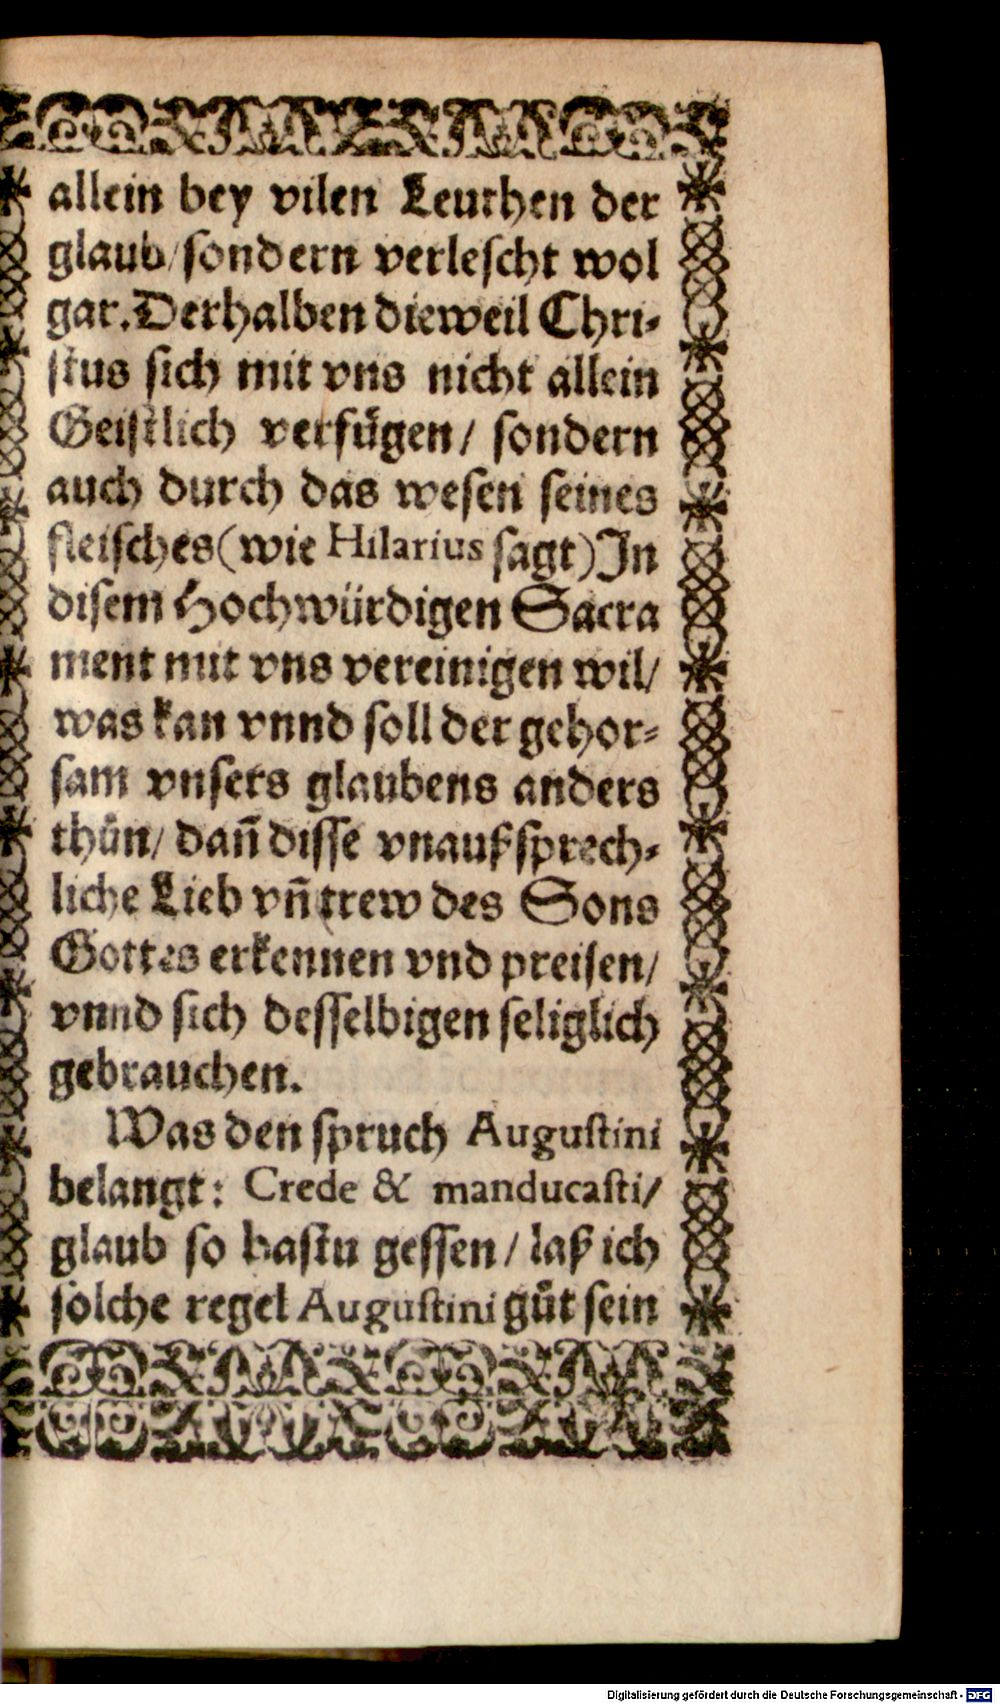 allein bey vilen Leuthen der
glaub/sondern verlescht wol
gar. Derhalben dieweil Chri-
stus sich mit vns nicht allein
Geistlich verfuͤgen/ sondern
auch durch das wesen seines
fleisches (wie Hilarius sagt) In
disem Hochwürdigen Sacra
ment mit vns vereinigen wil/
was kan vnnd soll der gehor-
sam vnsers glaubens anders
thuͤn/ dañ disse vnaußsprech-
liche Lieb vñ trew des Sons
Gottes erkennen vnd preisen/
vnnd sich desselbigen seliglich
gebrauchen.
Was den spruch Augustini
belangt: Crede & manducasti/
glaub so hastu gessen/ laß ich
solche regel Augustini guͦt sein
Digitalisierung gefördert durch die Deutsche Forschungsgemeinschaft - DFG